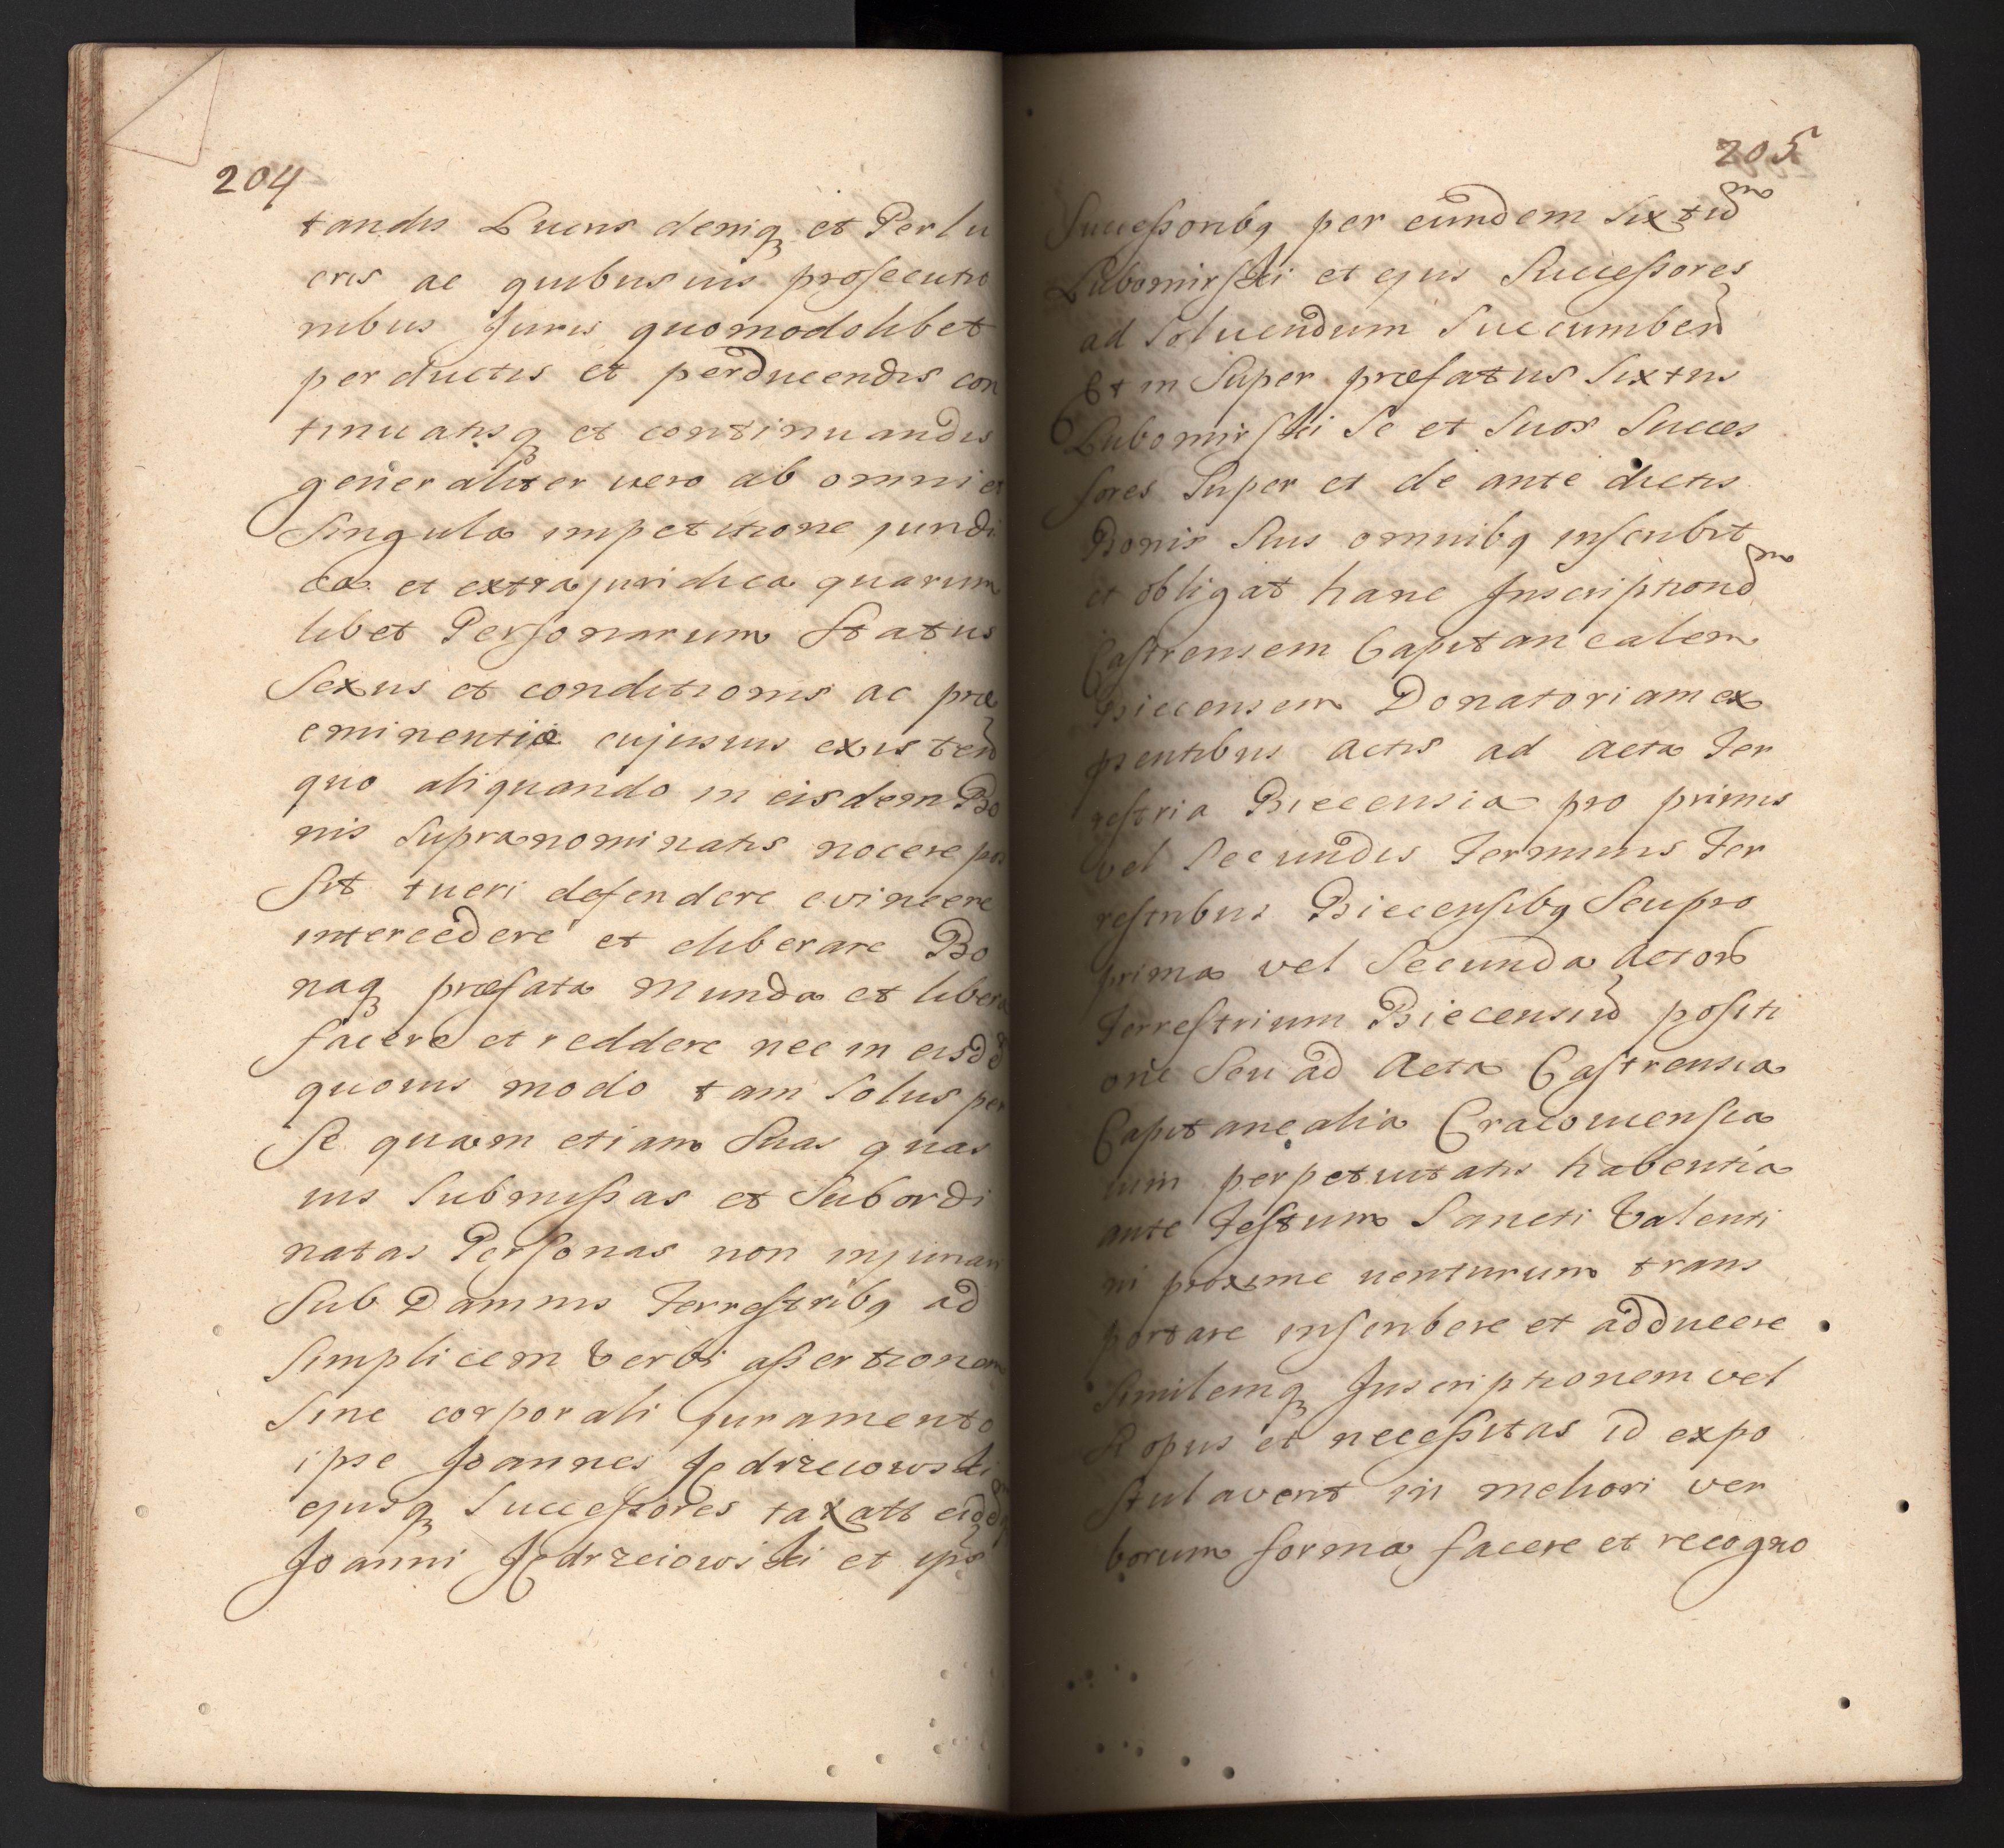 204
tandis Lucris deniq et Perlu
cris ac quibusuis prosecutio
nibus Juris quomodolibet
perductis et perducendis con
tinuatisq et continuandis
generaliter vero ab omni et
Singula impetitione juridi
ca et extrajuridica quarum
libet Personarum Status
Sexus et conditionis ac præ
eminentiæ cujusuis existen
quo aliquando in eisdem Bo
nis Supranominatis nocere pos
Sit tueri defendere evincere
intercedere et eliberare Bo
naq præfata Munda et libera
facere et reddere nec in eisd
quouis modo tam Solus per
Se quam etiam Suas quas
uis Submissas et Subordi
natas Personas non injuriari
Sub Damnis Terrestribq ad
Simplicem Verbi assertionem
Sine corporali juramento
ipse Joannes Jędrzeiowski
ejusq Successores taxatis eid
Joanni Jędrzeiowski et ips
205
Successoribq per eundem Sixtum
Lubomirski et ejus Successores
ad Soluendum Succumben
Et in Super præfatus Sixtus
Lubomirski Se et Suos Succes
sores Super et de ante dictis
Bonis Suis omnibq inscribit
et obligat hanc Inscriptionem
Castrensem Capitanealem
Biecensem Donatoriam ex
pntibus actis ad acta Ter
restria Biecensia pro primis
vel Secundis Terminis Ter
restribus Biecensibq Seu pro
prima vel Secunda actor
Terrestrium Biecensiu positi
one Seu ad Acta Castrensia
Capitanealia Cracoviensia
uim perpetuitatis habentia
ante Festum Sancti Valenti
ni proxime venturum trans
portare inscribere et adducere
Similemq Inscriptionem vel
Si opus et necessitas id expo
stulaverit in meliori ver
borum forma facere et recogno